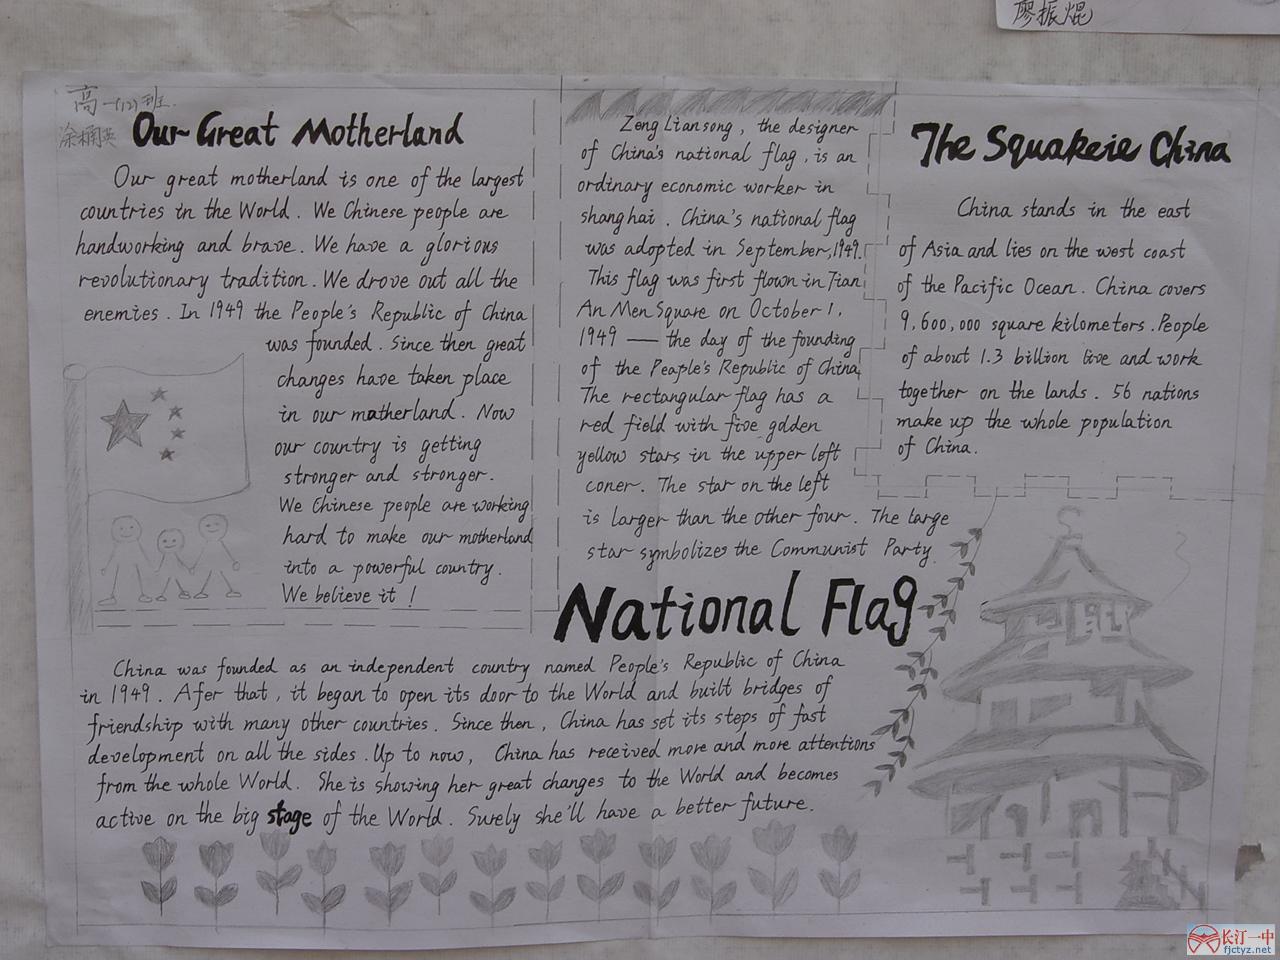 廖振焜
高一(12)班.
涂楠英
Our Great Motherland
Our great motherland is one of the largest
countries in the World. We Chinese people are
handworking and brave. We have a glorious
revolutionary tradition. We drove out all the
enemies. In 1949 the People's Republic of China
was founded. Since then great
changes have taken place
in our matherland. Now
our country is getting
stronger and stronger.
We Chinese people are working
hard to make our motherland
into a powerful country.
We believe it!
Zeng Liansong, the designer
of China's national flag, is an
ordinary economic worker in
shanghai. China's national flag
was adopted in September, 1949.
This flag was first flown in Tian
An Men Square on October 1,
1949 — the day of the founding
of the Peaple's Republic of China
The rectangular flag has a
red field with five golden
yellow stars in the upper left
coner. The star on the left
is larger than the other four. The large
star symbolizes the Communist Party.
The Squakeie China
China stands in the east
of Asia and lies on the west coast
of the Pacific Ocean. China covers
9,600,000 square kilometers. People
of about 1.3 billion live and work
together on the lands. 56 nations
make up the whole population
of China.
National Flag
China was founded as an independent country named People's Republic of China
in 1949. Afer that, it began to open its door to the World and built bridges of
friendship with many other countries. Since then, China has set its steps of fast
development on all the sides. Up to now, China has received more and more attentions
from the whole World. She is showing her great changes to the World and becomes
active on the big stage of the World. Surely she'll have a better future.
长汀一中
fjctyz.net